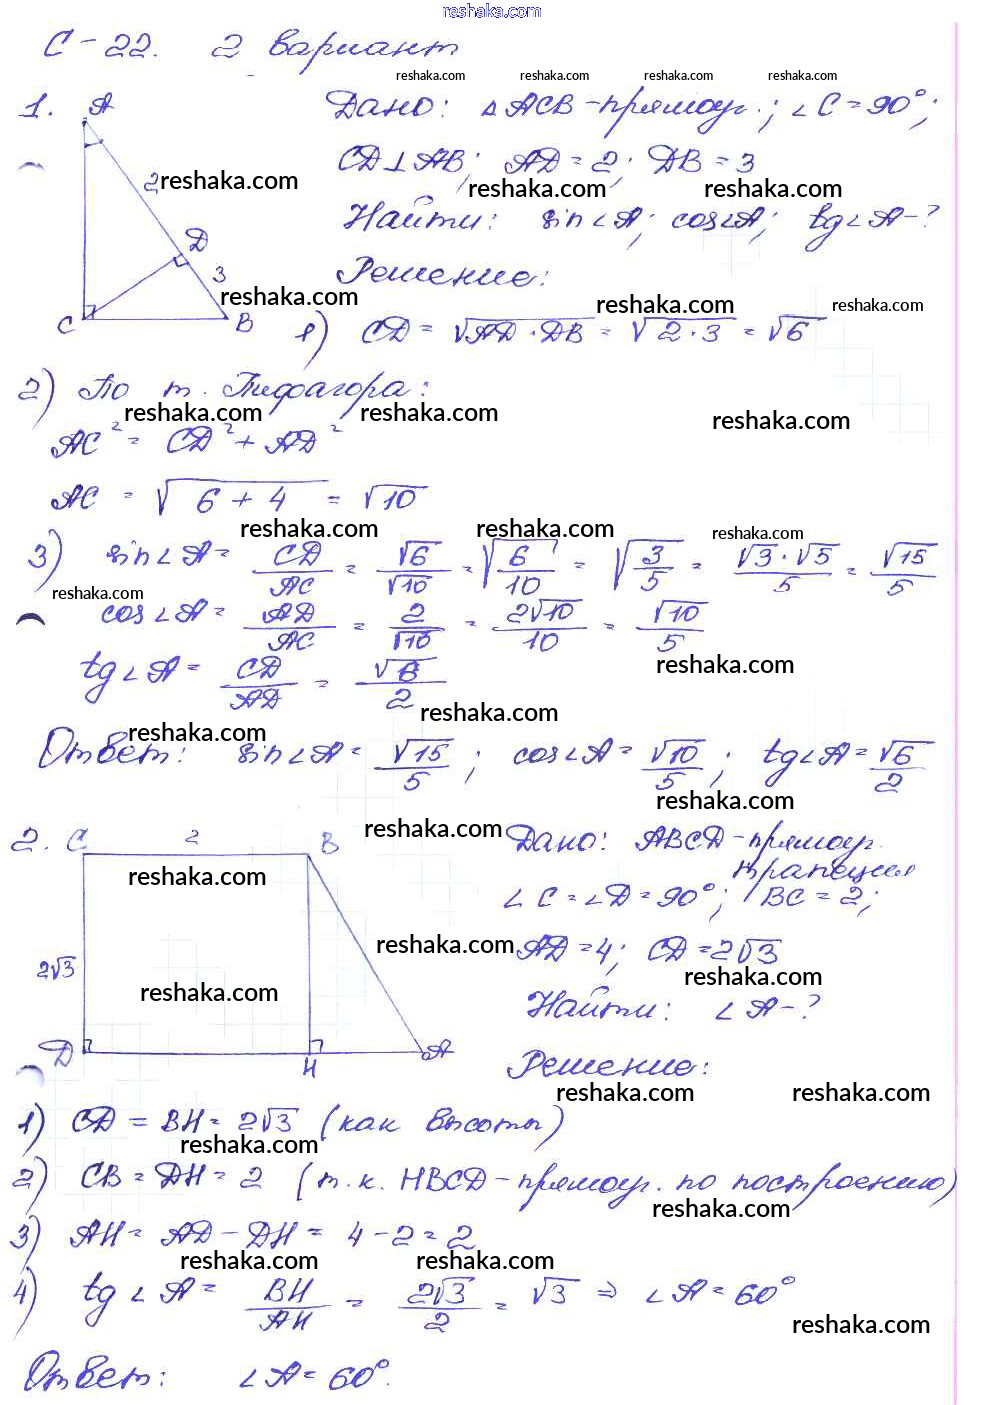 reshaka.com
С-22. 2 вариант
reshaka.com reshaka.com reshaka.com reshaka.com
1. A Дано: △ACB-прямоуг.; ∠C=90°;
CD⊥AB; AD=2; DB=3
2 reshaka.com reshaka.com reshaka.com
Найти: sin∠A; cos∠A; tg∠A-?
D
3 Решение:
reshaka.com reshaka.com reshaka.com
C B 1) CD = √AD·DB = √2·3 = √6
2) По т. Пифагора:
reshaka.com reshaka.com reshaka.com
AC² = CD² + AD²
AC = √6+4 = √10
reshaka.com reshaka.com reshaka.com
3) sin∠A = CD/AC = √6/√10 = √6/10 = √3/5 = √3·√5/5 = √15/5
reshaka.com
cos∠A = AD/AC = 2/√10 = 2√10/10 = √10/5
reshaka.com
tg∠A = CD/AD = √6/2
reshaka.com
reshaka.com
Ответ: sin∠A = √15/5; cos∠A = √10/5; tg∠A = √6/2
reshaka.com
reshaka.com
2. C 2 B Дано: ABCD-прямоуг.
трапеция
reshaka.com
∠C=∠D=90°; BC=2;
reshaka.com
AD=4; CD=2√3
2√3
reshaka.com reshaka.com
Найти: ∠A-?
D H A
Решение:
reshaka.com reshaka.com
1) CD = BH = 2√3 (как высоты)
reshaka.com
2) CB = DH = 2 (т.к. HBCD-прямоуг. по построению)
reshaka.com
3) AH = AD - DH = 4-2=2
reshaka.com reshaka.com
4) tg∠A = BH/AH = 2√3/2 = √3 ⇒ ∠A=60°
reshaka.com
Ответ: ∠A=60°.